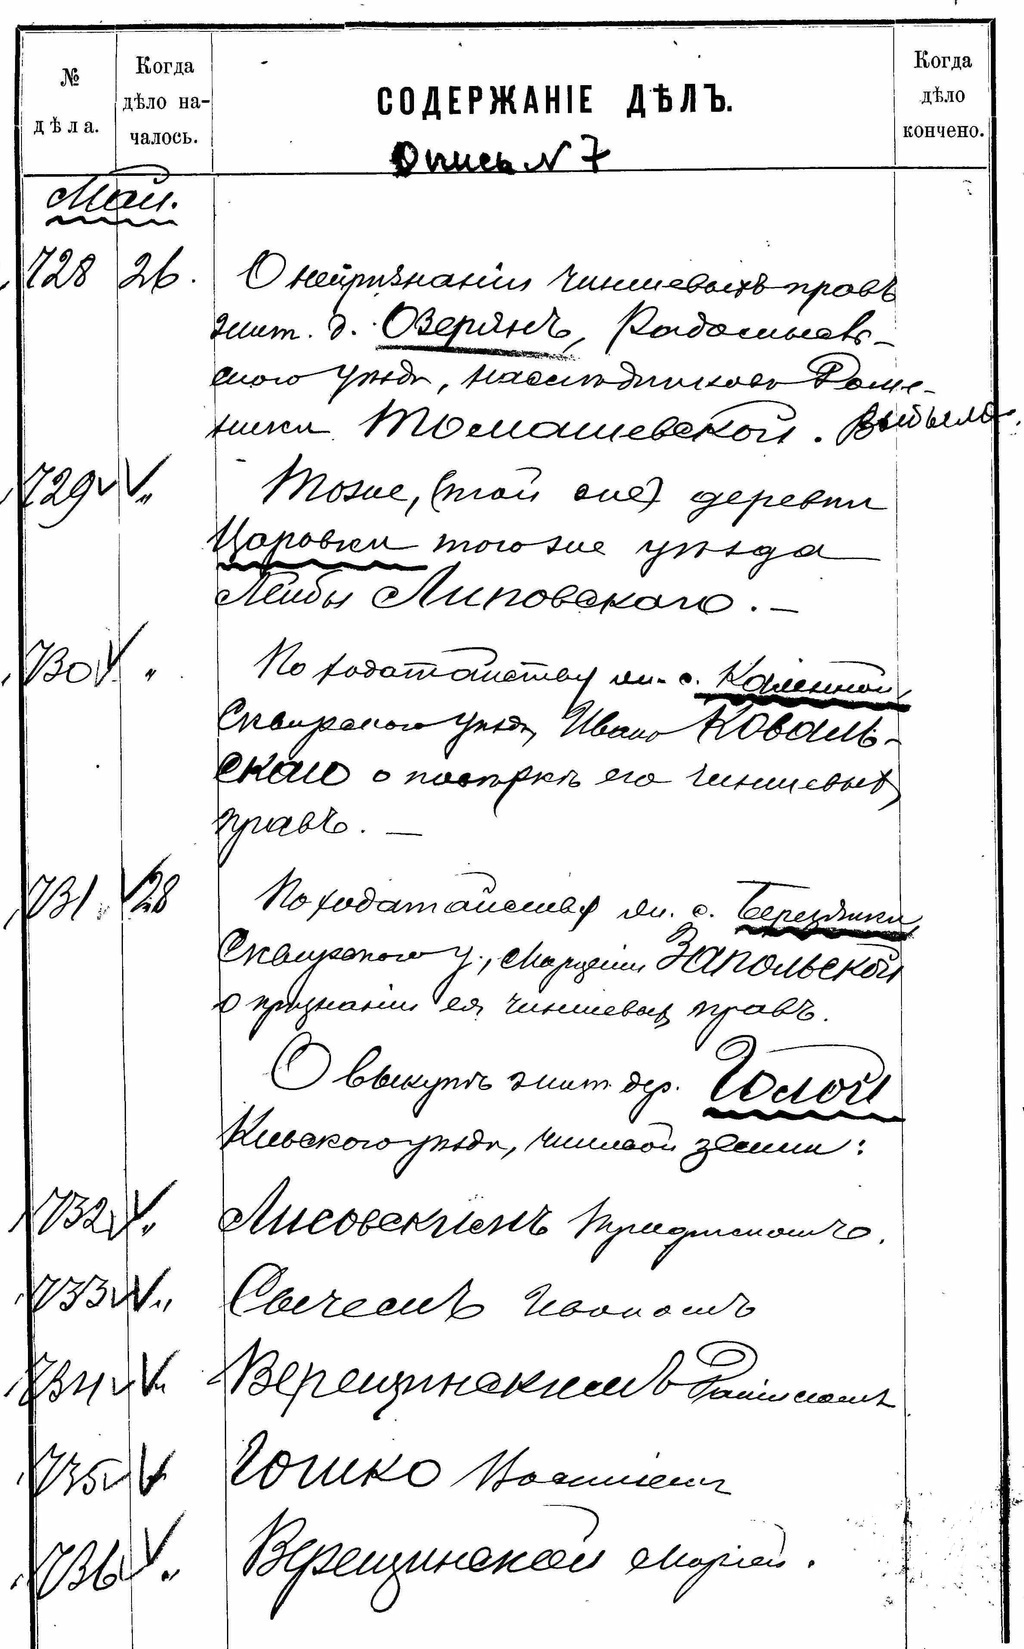 № дѣла.
Когда дѣло началось.
СОДЕРЖАНІЕ ДѢЛЪ.
Когда дѣло кончено.
Опись N 7
Май.
728 26. О непризнаніи чиншевыхъ правъ
жит. д. Озерянъ, Радомысль-
скаго уѣзда, наслѣдниковъ Доми-
ники Томашевской. Выбыло.
729 V " Тоже, (той же) деревни
Царовки того же уѣзда
Лейбы Липовскаго. —
730 V " По ходатайству жи. с. Каменной,
Сквирскаго уѣзда, Ивана Коваль-
скаго о его чиншевыхъ
правъ. —
731. V 28 По ходатайству жи. с. Березянки,
Сквирскаго у., Запольской
о признаніи ея чиншевыхъ правъ.
О выкупѣ жит. дер. Голой
Кіевскаго уѣзда, чиншевой земли:
732 V " Лисовскимъ
733 V " Сычемъ Иваномъ
734 V " Верещинскимъ
735 V " Гошко
736 V " Верещинской Маріей.